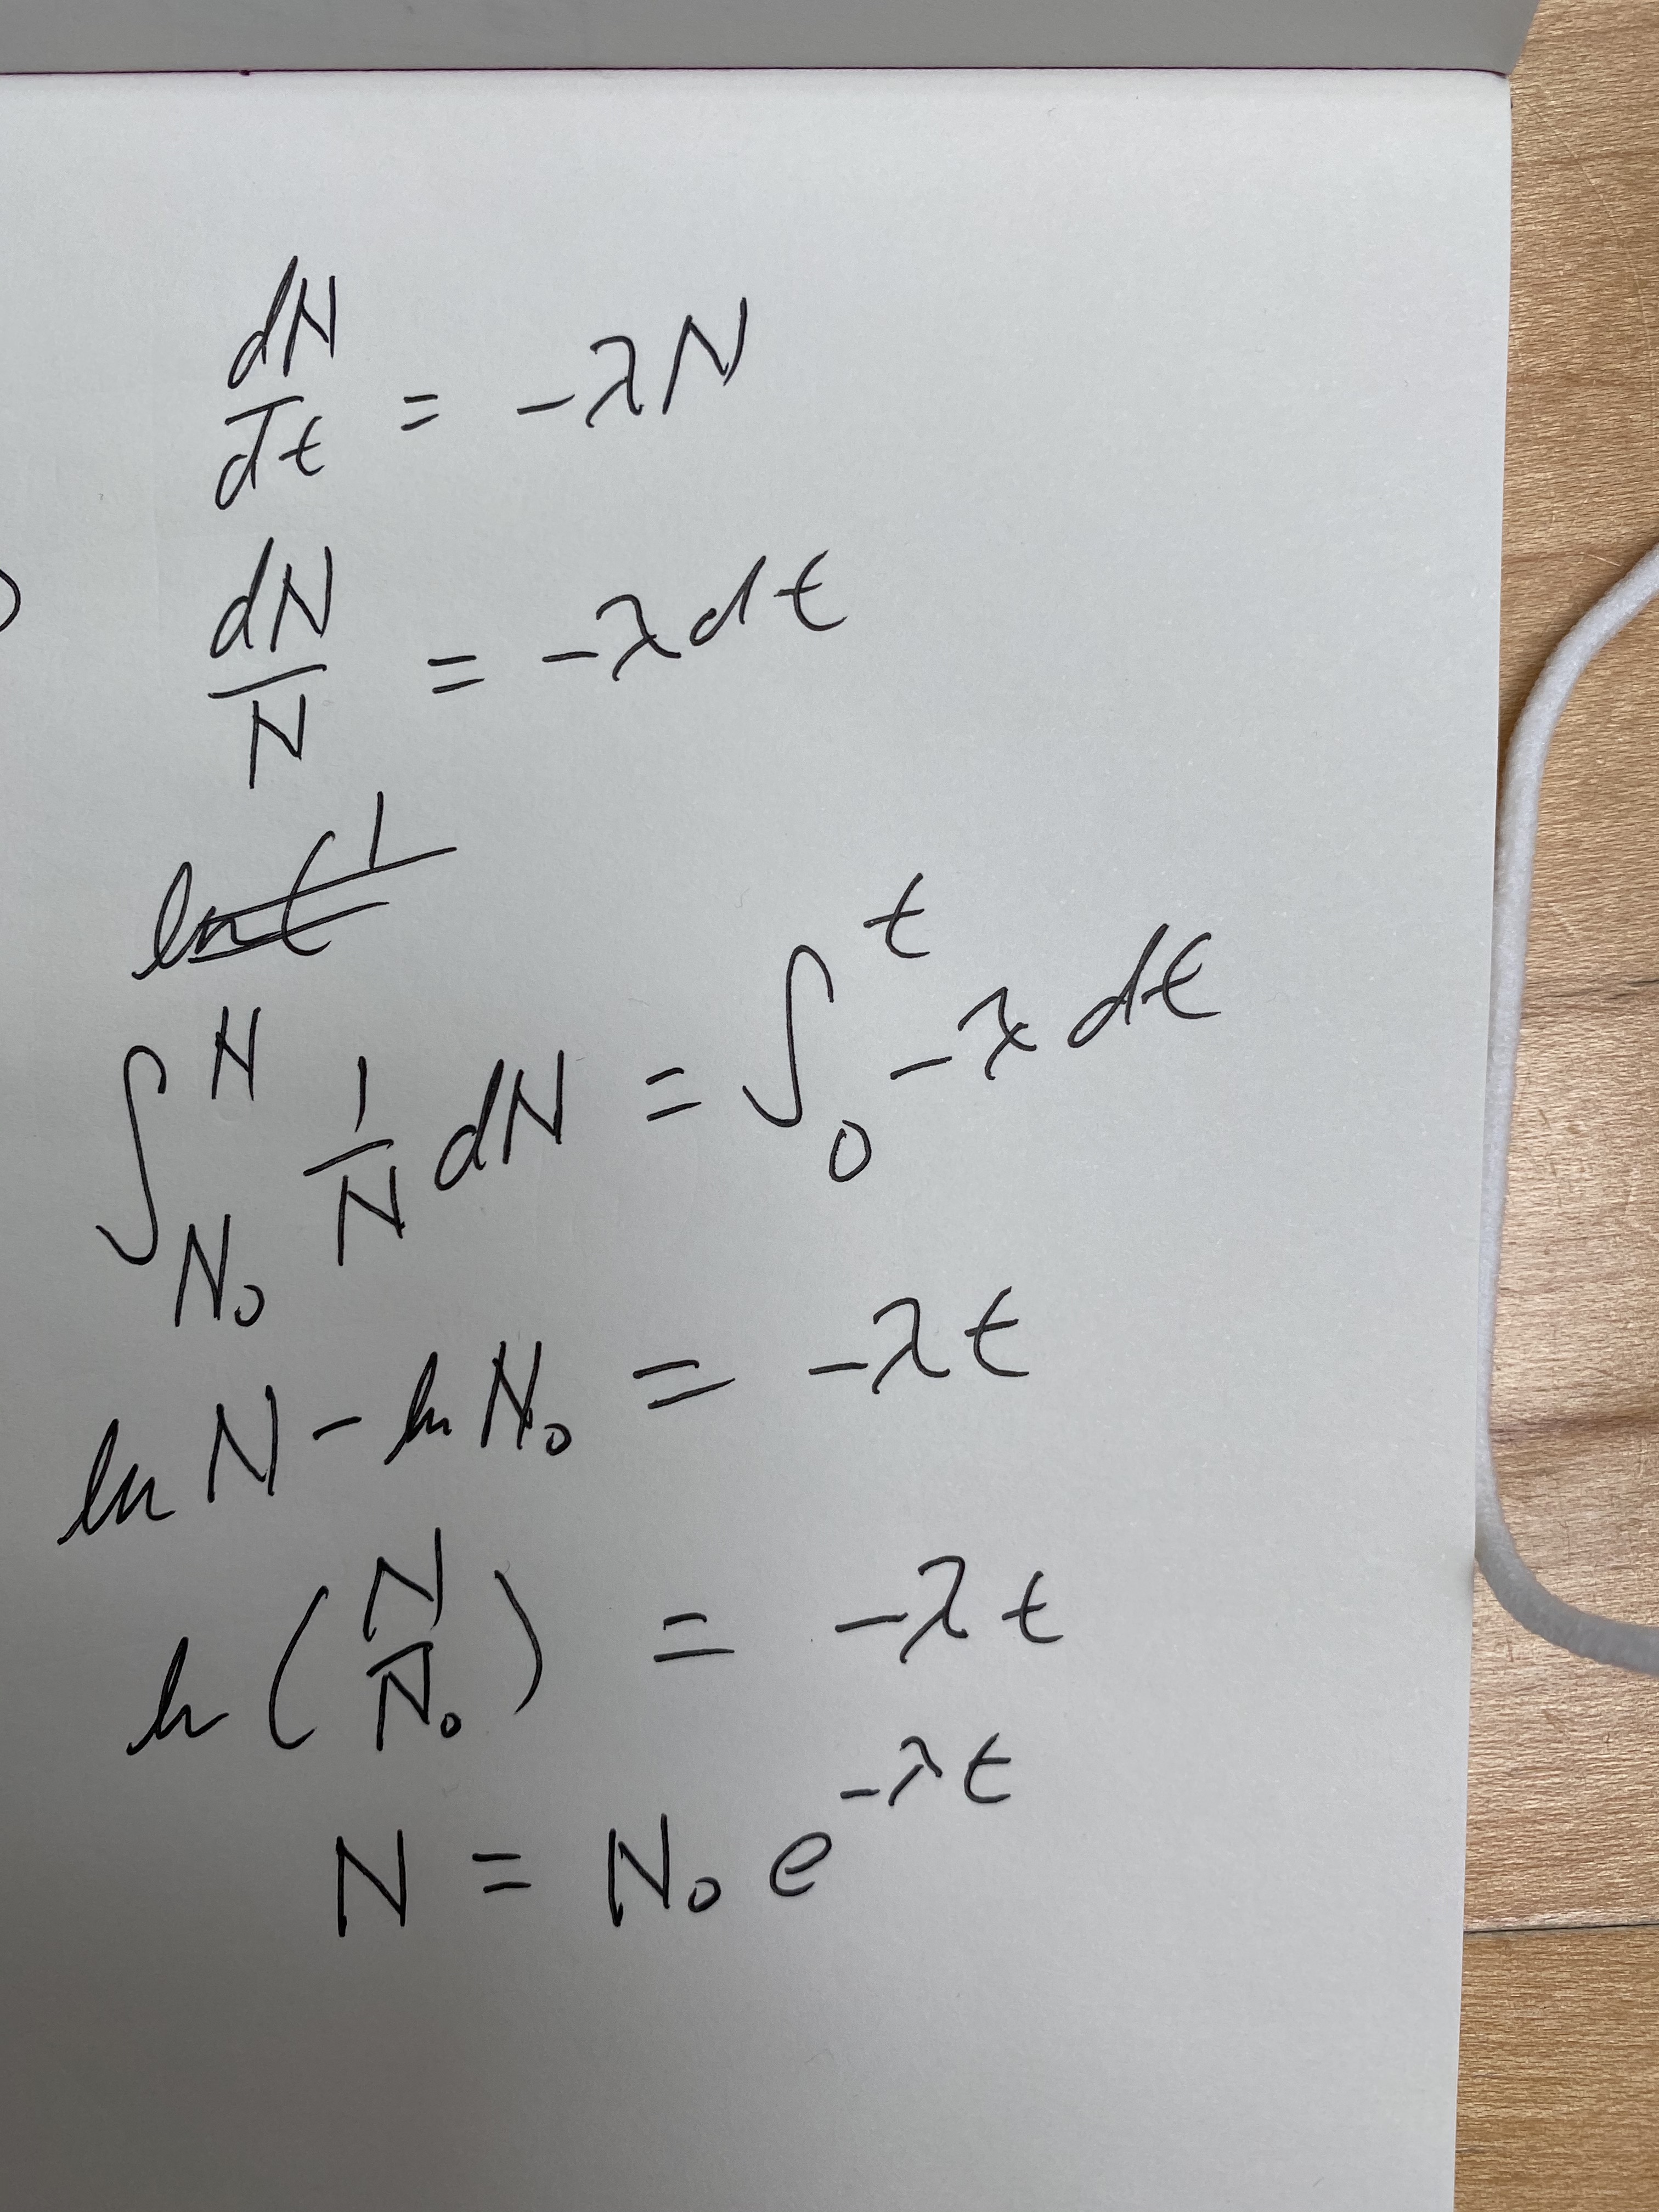 dN/dt = -λN
dN/N = -λdt
∫_{N₀}^{N} 1/N dN = ∫_{0}^{t} -λ dt
ln N - ln N₀ = -λt
ln(N/N₀) = -λt
N = N₀ e^{-λt}